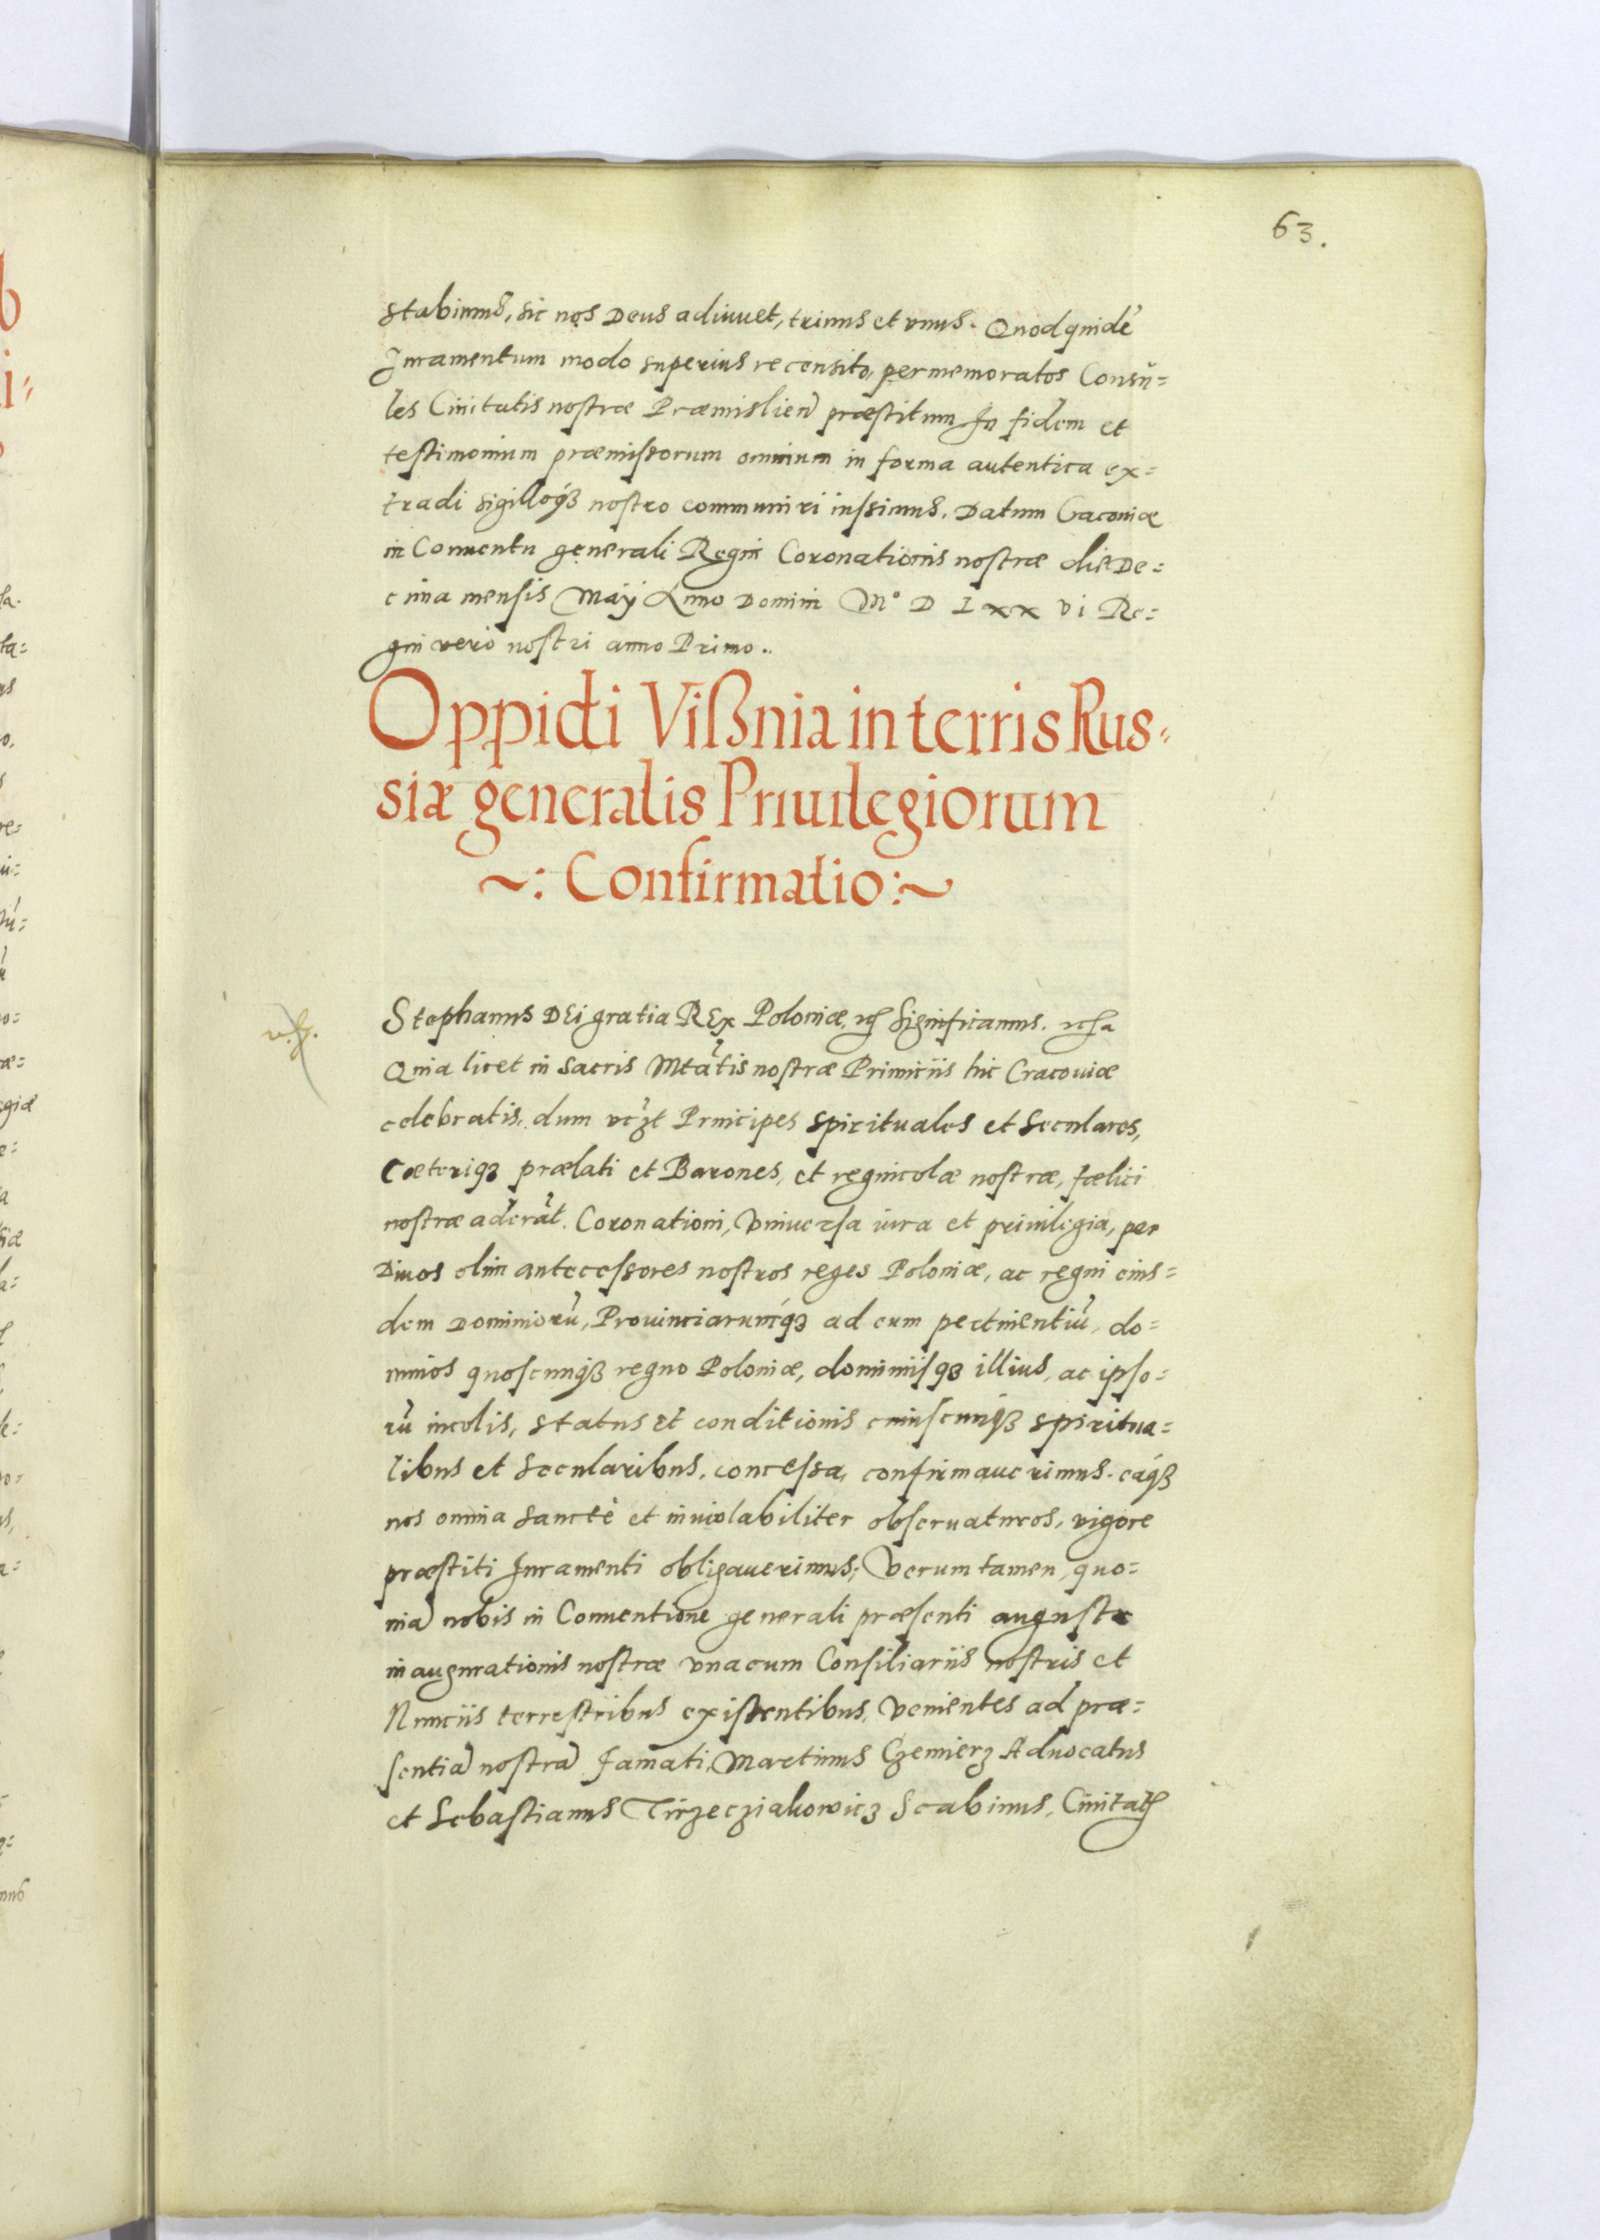 63.
stabimus, sic nos Deus adiuuet, trinus et vnus. Quodquidē
Juramentum modo superius recensito, per memoratos Consu=
les Ciuitatis nostræ Præmislien præstitum Jn fidem et
testimonium præmissorum omnium in forma autentica ex=
tradi sigilloqꝫ nostro communiri iussimus. Datum Cracouiæ
in Conuentu generali Regni Coronationis nostræ die De=
cima mensis Maij Anno Domini M° D Lxx vi Re=
gni vero nostri anno Primo..
Oppidi Vißnia in terris Rus=
siæ generalis Priuilegiorum
~: Confirmatio :~
Stephanus DEi gratia REx Poloniæ, etc Significamus. etc
Quia licet in sacris Mtātis nostræ Primiciis hic Cracouiæ
celebratis, dum vczt Principes spirituales et seculares,
Cæteriqꝫ prælati et Barones, et regnicolæ nostræ, fœlici
nostræ aderāt. Coronationi, Vniuersa iura et priuilegia, per
Diuos olim antecessores nostros reges Poloniæ, ac regni eius=
dem Dominiorū, Prouinciarumqꝫ ad eum pertinentiū, do=
minos quoscunqꝫ regno Poloniæ, dominiisqꝫ illius, ac ipso=
rū incolis, status et conditionis cuiuscunqꝫ spiritua=
libus et secularibus, concessa, confirmauerimus. eaqꝫ
nos omnia sanctè et inuiolabiliter obseruaturos, vigore
præstiti Juramenti obligauerimus; Verum tamen, quo=
niā nobis in Conuentione generali præsenti augustæ
inaugurationis nostræ vnacum Consiliariis nostris et
Nunciis terrestribus existentibus, Venientes ad præ=
sentiā nostrā Famati, Martinus Czemierz Aduocatus
et Sebastianus Tirzecziakowicz Scabinus, Ciuitatis